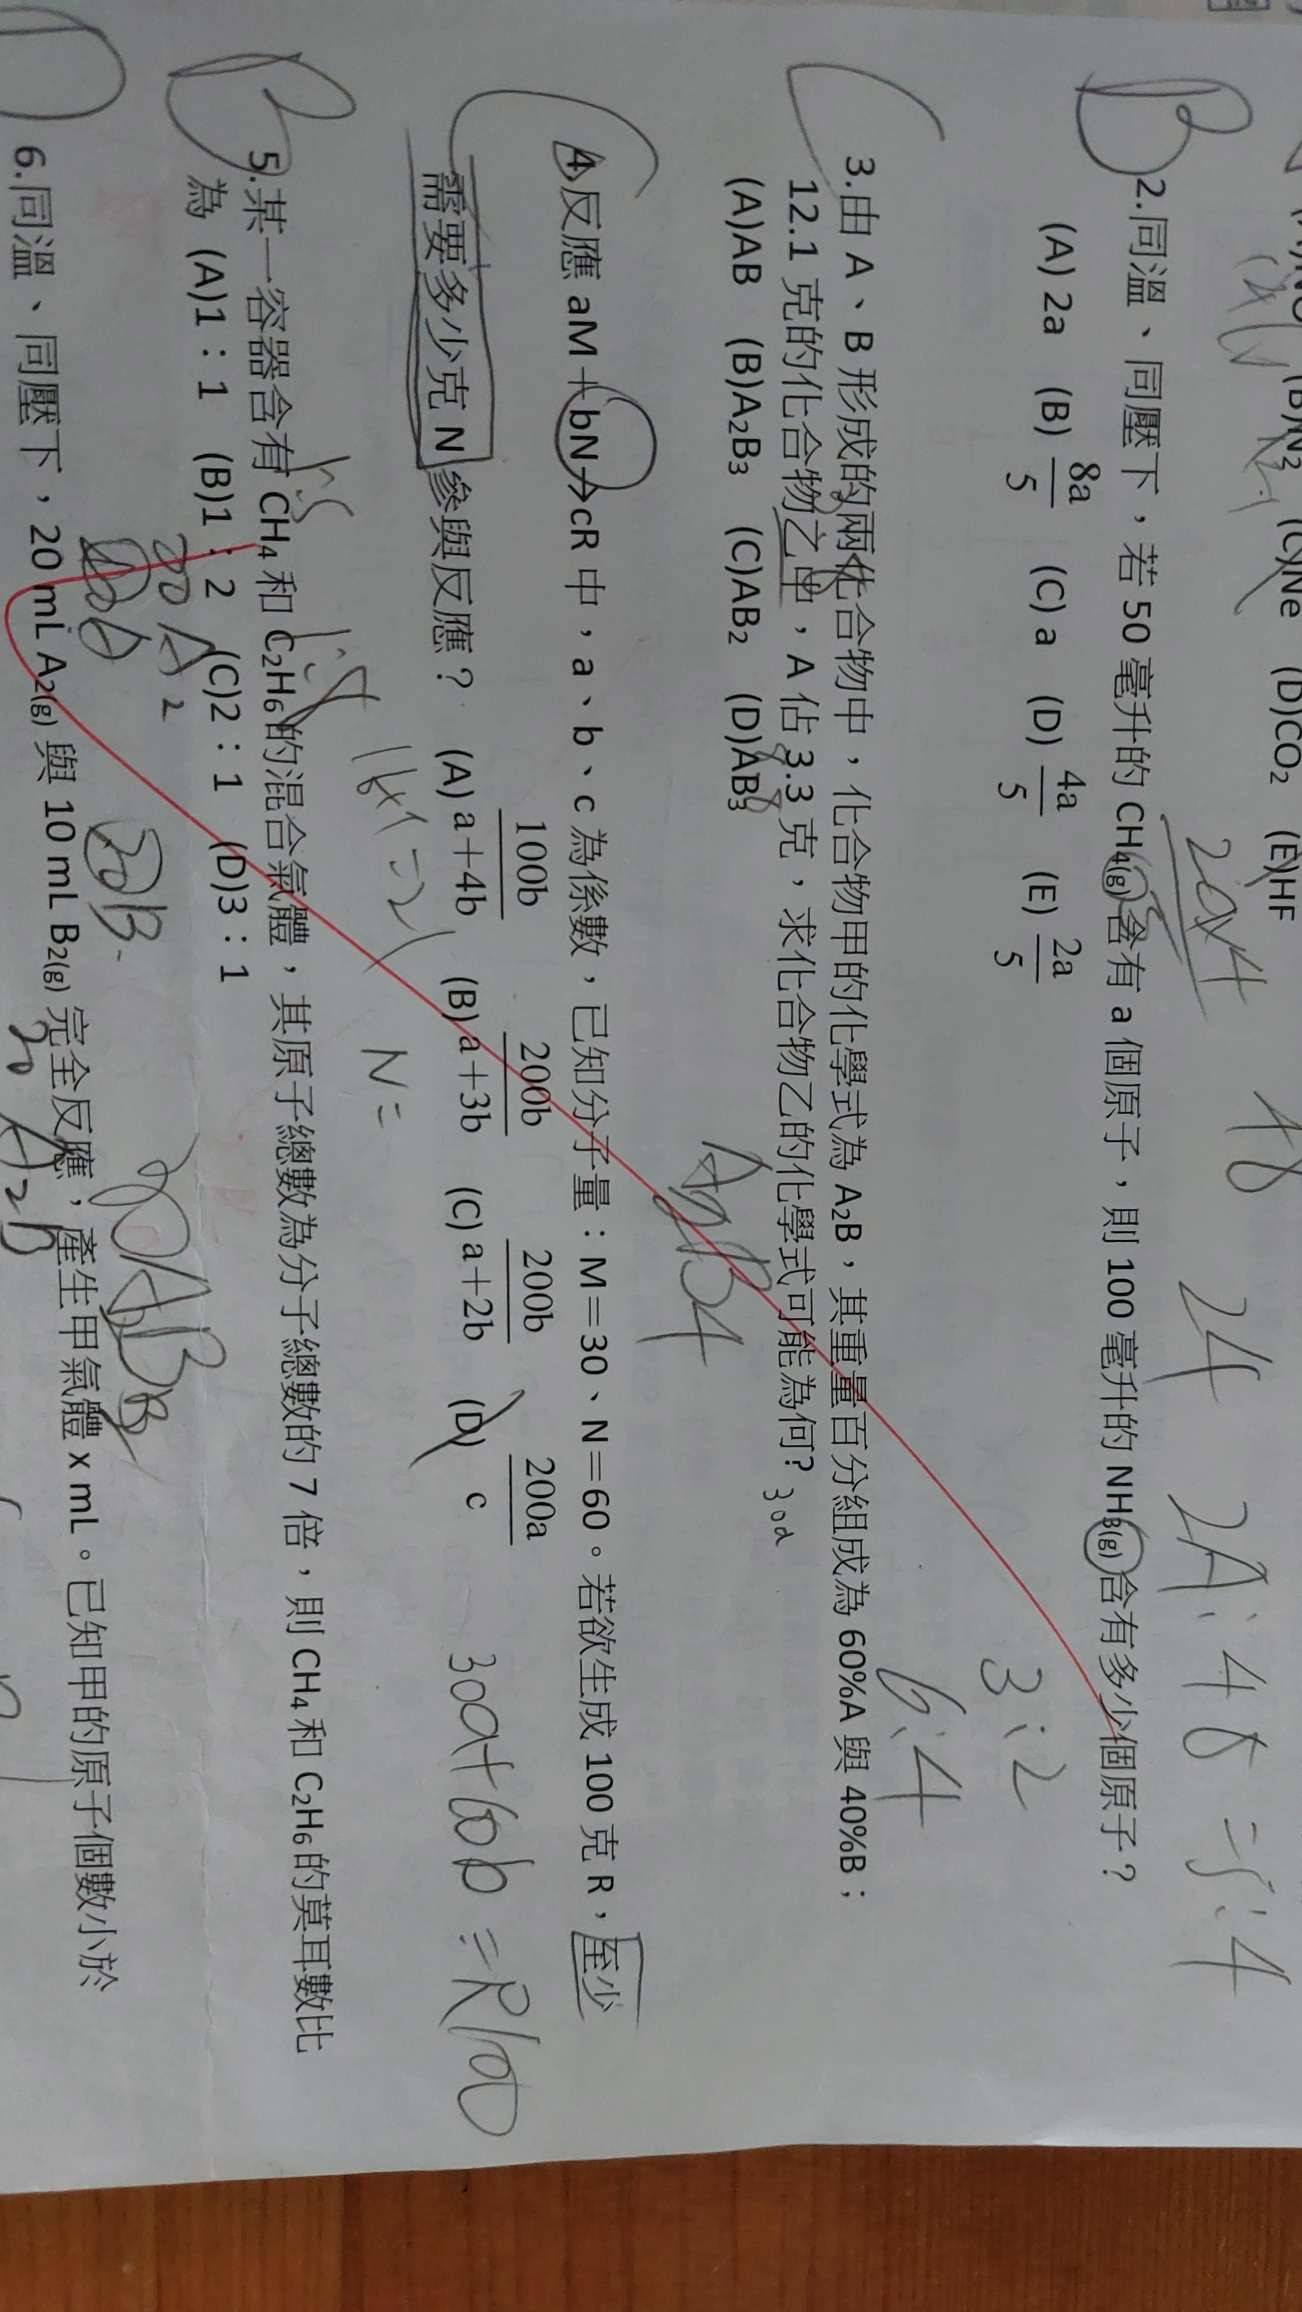 (B)N₂ (C)Ne (D)CO₂ (E)HF
B
2.同溫、同壓下，若 50 毫升的 CH₄(g)含有 a 個原子，則 100 毫升的 NH₃(g)含有多少個原子？
(A) 2a (B) 8a/5 (C) a (D) 4a/5 (E) 2a/5
3:2
6:4
C
3.由 A、B 形成的兩化合物中，化合物甲的化學式為 A₂B，其重量百分組成為 60%A 與 40%B；
12.1 克的化合物之中，A 佔 3.3 克，求化合物乙的化學式可能為何？
(A)AB (B)A₂B₃ (C)AB₂ (D)AB₃
30a
C
4.反應 aM＋bN→cR 中，a、b、c 為係數，已知分子量：M＝30、N＝60。若欲生成 100 克 R，至少
需要多少克 N 參與反應？ (A) 100b/a＋4b (B) 200b/a＋3b (C) 200b/a＋2b (D) 200a/c
30a+60b=R100
N=
B
5.某一容器含有 CH₄ 和 C₂H₆ 的混合氣體，其原子總數為分子總數的 7 倍，則 CH₄ 和 C₂H₆ 的莫耳數比
為 (A)1：1 (B)1：2 (C)2：1 (D)3：1
D
6.同溫、同壓下，20 mL A₂(g) 與 10 mL B₂(g) 完全反應，產生甲氣體 x mL。已知甲的原子個數小於